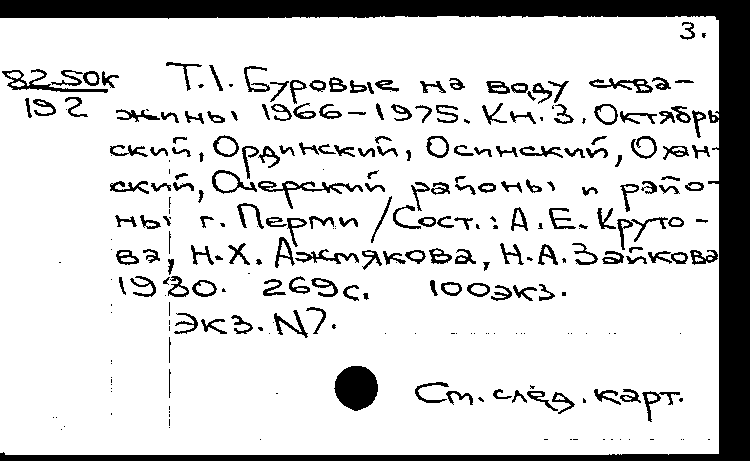 3.
82-50к Т.1. Буровые на воду сква-
192 жины 1966-1975. Кн. 3. Октябрь
ский, Ординский, Осинский, Охан-
ский, Очерский районы и райо-
ны г. Перми / Сост.: А.Е. Круто-
ва, Н.Х. Ажмякова, Н.А. Зайкова
1980. 269с. 100экз.
Экз. N7.
См. след. карт.